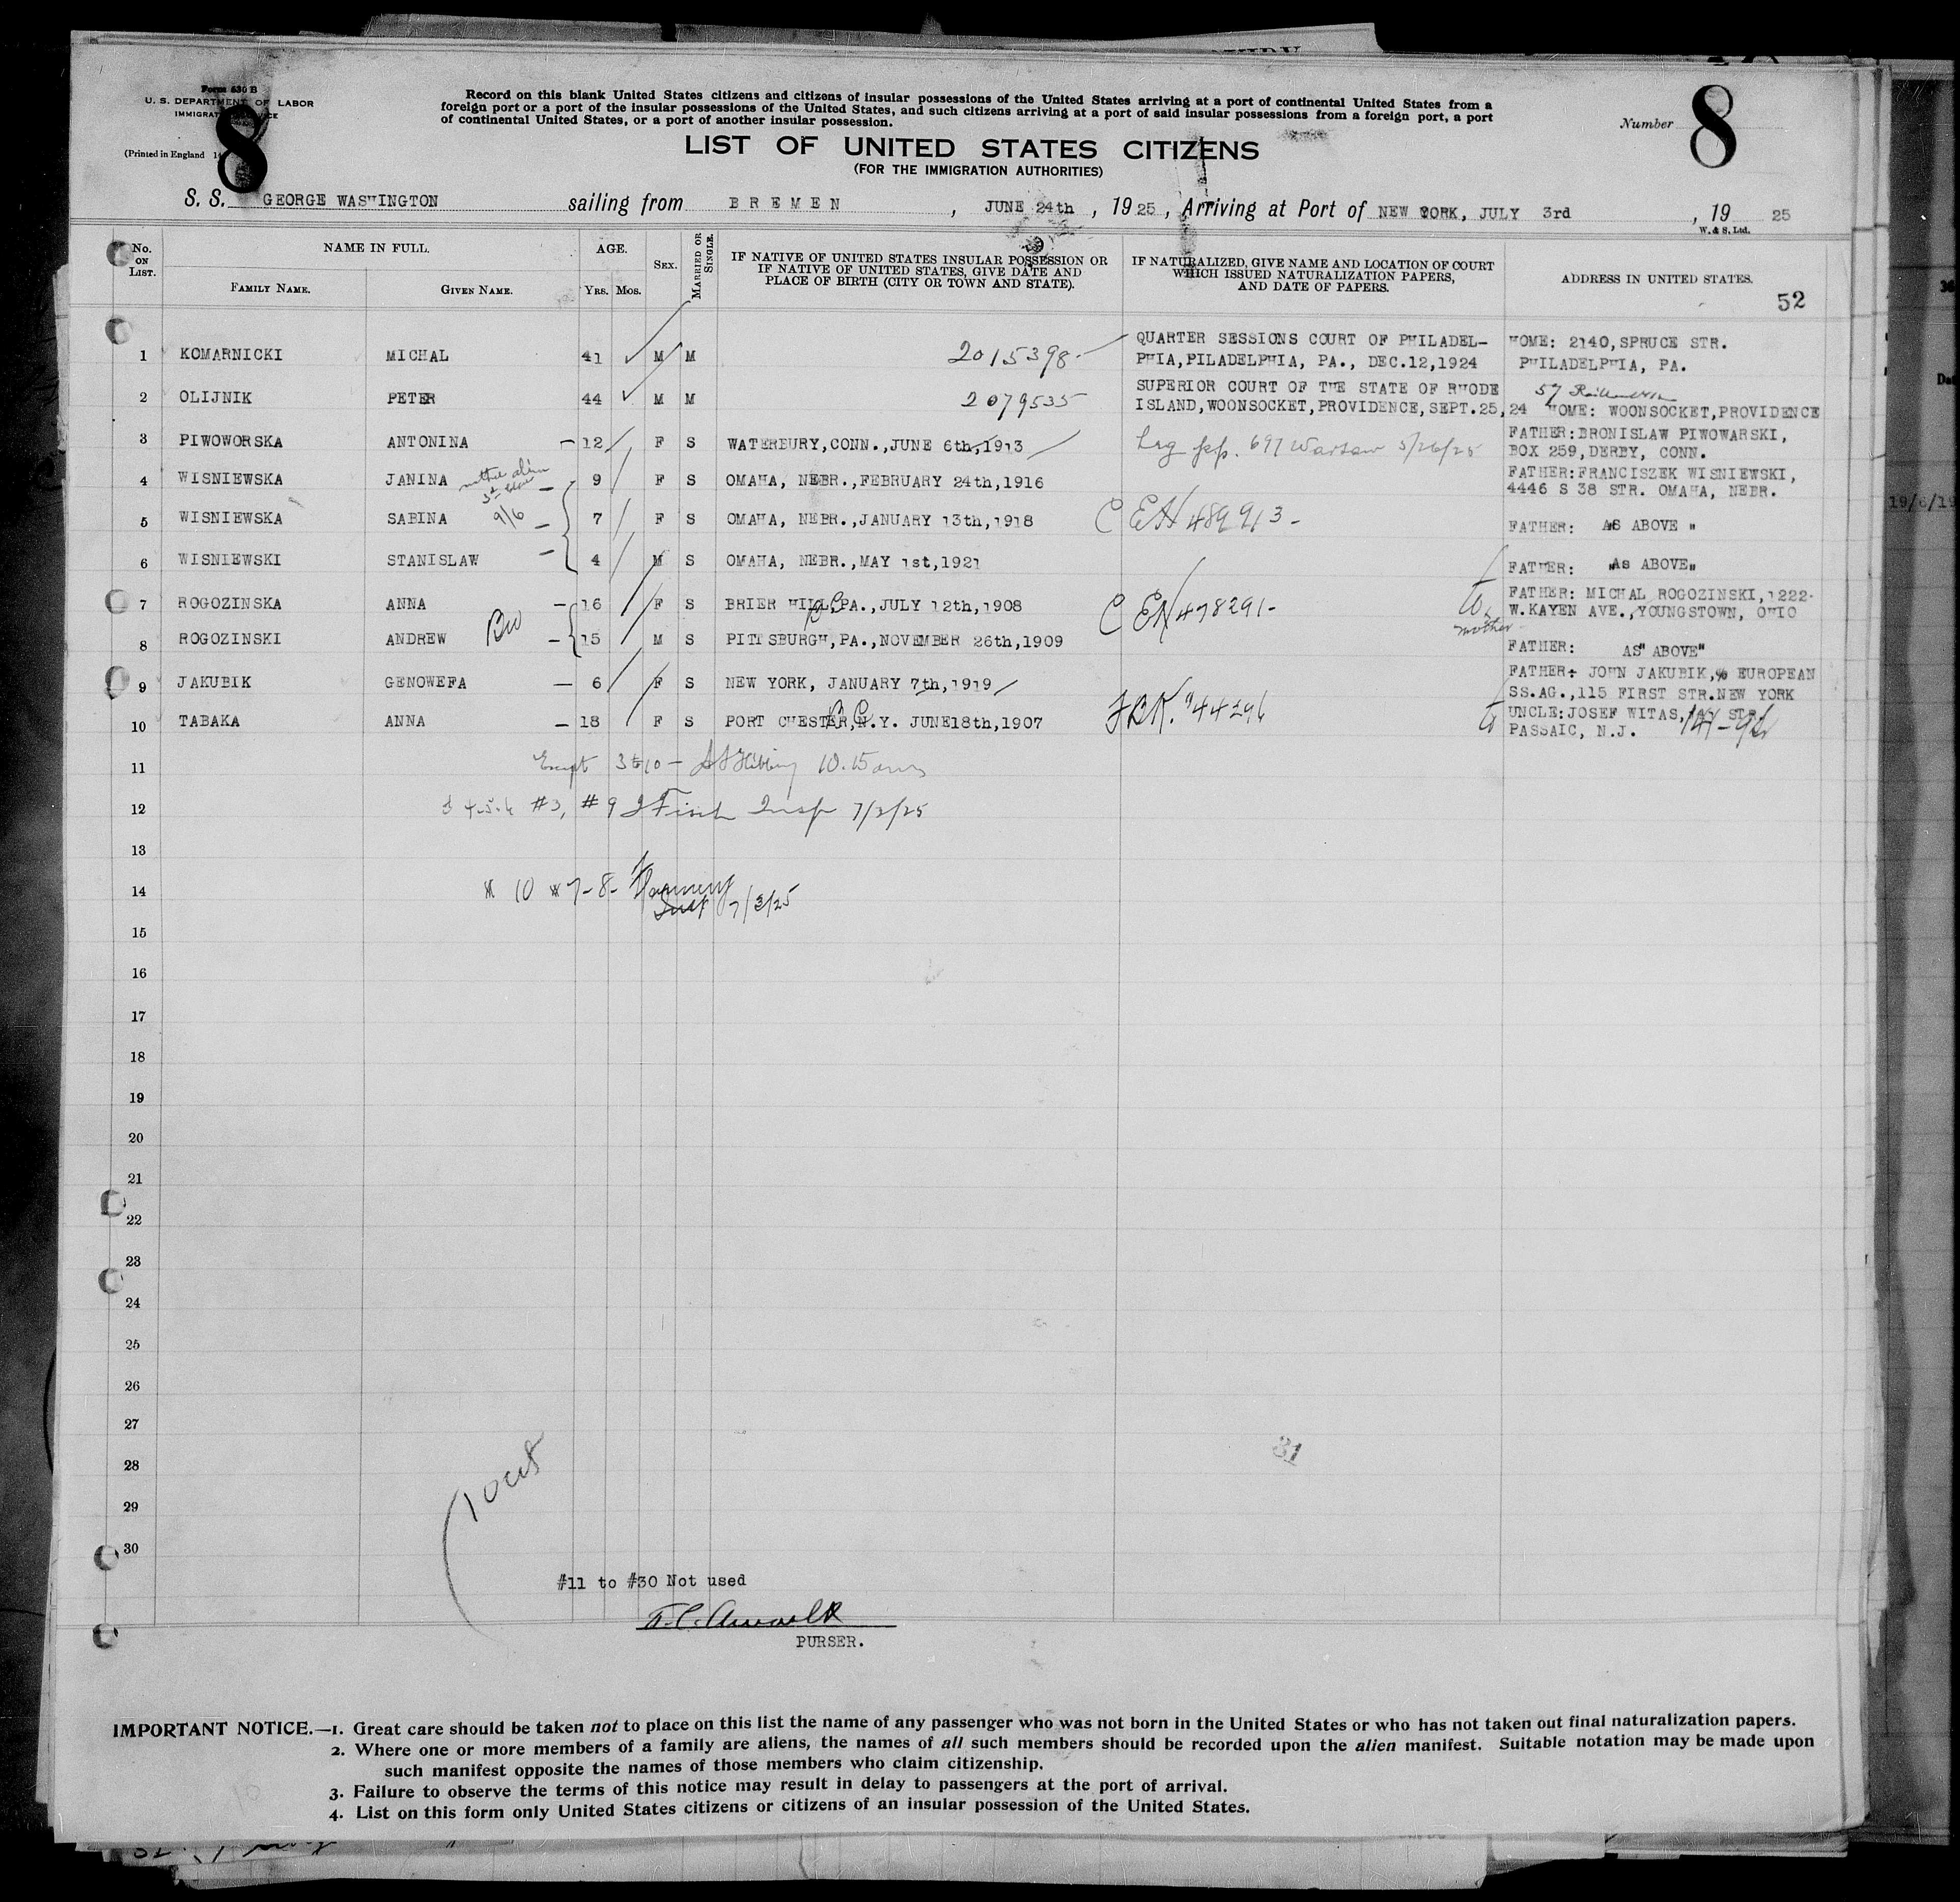 Form 630 B
U. S. DEPARTMENT OF LABOR
8
(Printed in England
Record on this blank United States citizens and citizens of insular possessions of the United States arriving at a port of continental United States from a
foreign port or a port of the insular possessions of the United States, and such citizens arriving at a port of said insular possessions from a foreign port, a port
of continental United States, or a port of another insular possession.
Number 8
LIST OF UNITED STATES CITIZENS
(FOR THE IMMIGRATION AUTHORITIES)
S. S. GEORGE WASHINGTON sailing from BREMEN, JUNE 24th, 1925, Arriving at Port of NEW YORK, JULY 3rd, 1925
W. & S. Ltd.
No. ON LIST. NAME IN FULL. AGE. SEX. MARRIED OR SINGLE. IF NATIVE OF UNITED STATES INSULAR POSSESSION OR IF NATIVE OF UNITED STATES, GIVE DATE AND PLACE OF BIRTH (CITY OR TOWN AND STATE). IF NATURALIZED, GIVE NAME AND LOCATION OF COURT WHICH ISSUED NATURALIZATION PAPERS, AND DATE OF PAPERS. ADDRESS IN UNITED STATES.
FAMILY NAME. GIVEN NAME. YRS. MOS.
52
1 KOMARNICKI MICHAL 41 M M 2015398- QUARTER SESSIONS COURT OF PHILADEL- HOME: 2140, SPRUCE STR.
PHIA,PILADELPHIA, PA., DEC.12,1924 PHILADELPHIA, PA.
2 OLIJNIK PETER 44 M M 2079535 SUPERIOR COURT OF THE STATE OF RHODE 57
ISLAND,WOONSOCKET,PROVIDENCE,SEPT.25,24 HOME: WOONSOCKET,PROVIDENCE
3 PIWOWORSKA ANTONINA 12 F S WATERBURY,CONN.,JUNE 6th,1913 697 Warsaw 5/26/25 FATHER:BRONISLAW PIWOWARSKI,
BOX 259,DERBY, CONN.
4 WISNIEWSKA JANINA mother alien 9/6 9 F S OMAHA, NEBR.,FEBRUARY 24th,1916 FATHER:FRANCISZEK WISNIEWSKI,
4446 S 38 STR. OMAHA, NEBR.
5 WISNIEWSKA SABINA 7 F S OMAHA, NEBR.,JANUARY 13th,1918 489913- FATHER: AS ABOVE "
6 WISNIEWSKI STANISLAW 4 M S OMAHA, NEBR.,MAY 1st,1921 FATHER: "AS ABOVE"
7 ROGOZINSKA ANNA 16 F S BRIER HILL,PA.,JULY 12th,1908 478291- FATHER: MICHAL ROGOZINSKI,1222-
to mother W.KAYEN AVE.,YOUNGSTOWN, OHIO
8 ROGOZINSKI ANDREW 15 M S PITTSBURGH,PA.,NOVEMBER 26th,1909 FATHER: AS" ABOVE"
9 JAKUBIK GENOWEFA 6 F S NEW YORK, JANUARY 7th,1919 FATHER: JOHN JAKUBIK,% EUROPEAN
SS.AG.,115 FIRST STR.NEW YORK
10 TABAKA ANNA 18 F S PORT CHESTER,N.Y. JUNE18th,1907 44296 UNCLE:JOSEF WITAS,
PASSAIC, N.J.
11 Except 3 to 10 -
12 #3, #9 Insp 7/3/25
13
14 10 7-8- Insp 7/3/25
15
16
17
18
19
20
21
22
23
24
25
26
27
31
28
10 US
29
30
#11 to #30 Not used
PURSER.
IMPORTANT NOTICE.—1. Great care should be taken not to place on this list the name of any passenger who was not born in the United States or who has not taken out final naturalization papers.
2. Where one or more members of a family are aliens, the names of all such members should be recorded upon the alien manifest. Suitable notation may be made upon
such manifest opposite the names of those members who claim citizenship.
3. Failure to observe the terms of this notice may result in delay to passengers at the port of arrival.
4. List on this form only United States citizens or citizens of an insular possession of the United States.